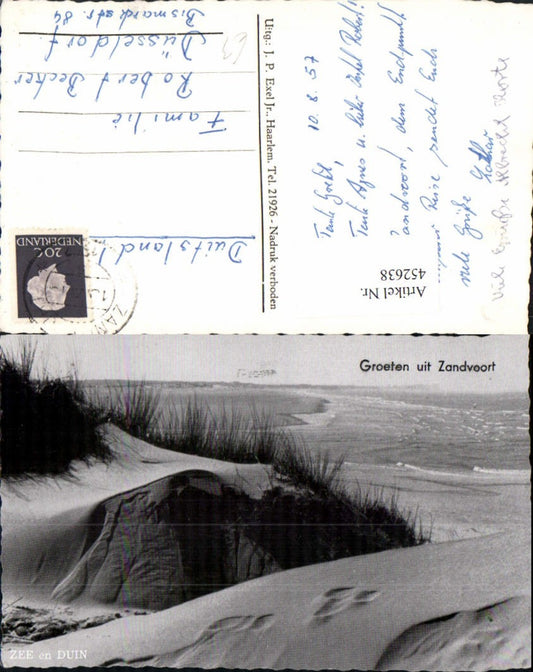 Groeten uit Zandvoort
ZEE en DUIN
Uitg.: J. P. Exel Jr., Haarlem. Tel. 21926 - Nadruk verboden
20c
NEDERLAND
Artikel Nr.
452638
10.8.57
Tante Agnes u. lieber Onkel Robert!
andvoort, dem Endpunkt
Reise sendet Euch
viele Grüße
Viele Grüße
Duitsland!
Familie
Robert Becker
Düsseldorf
Bismarckstr. 84
63